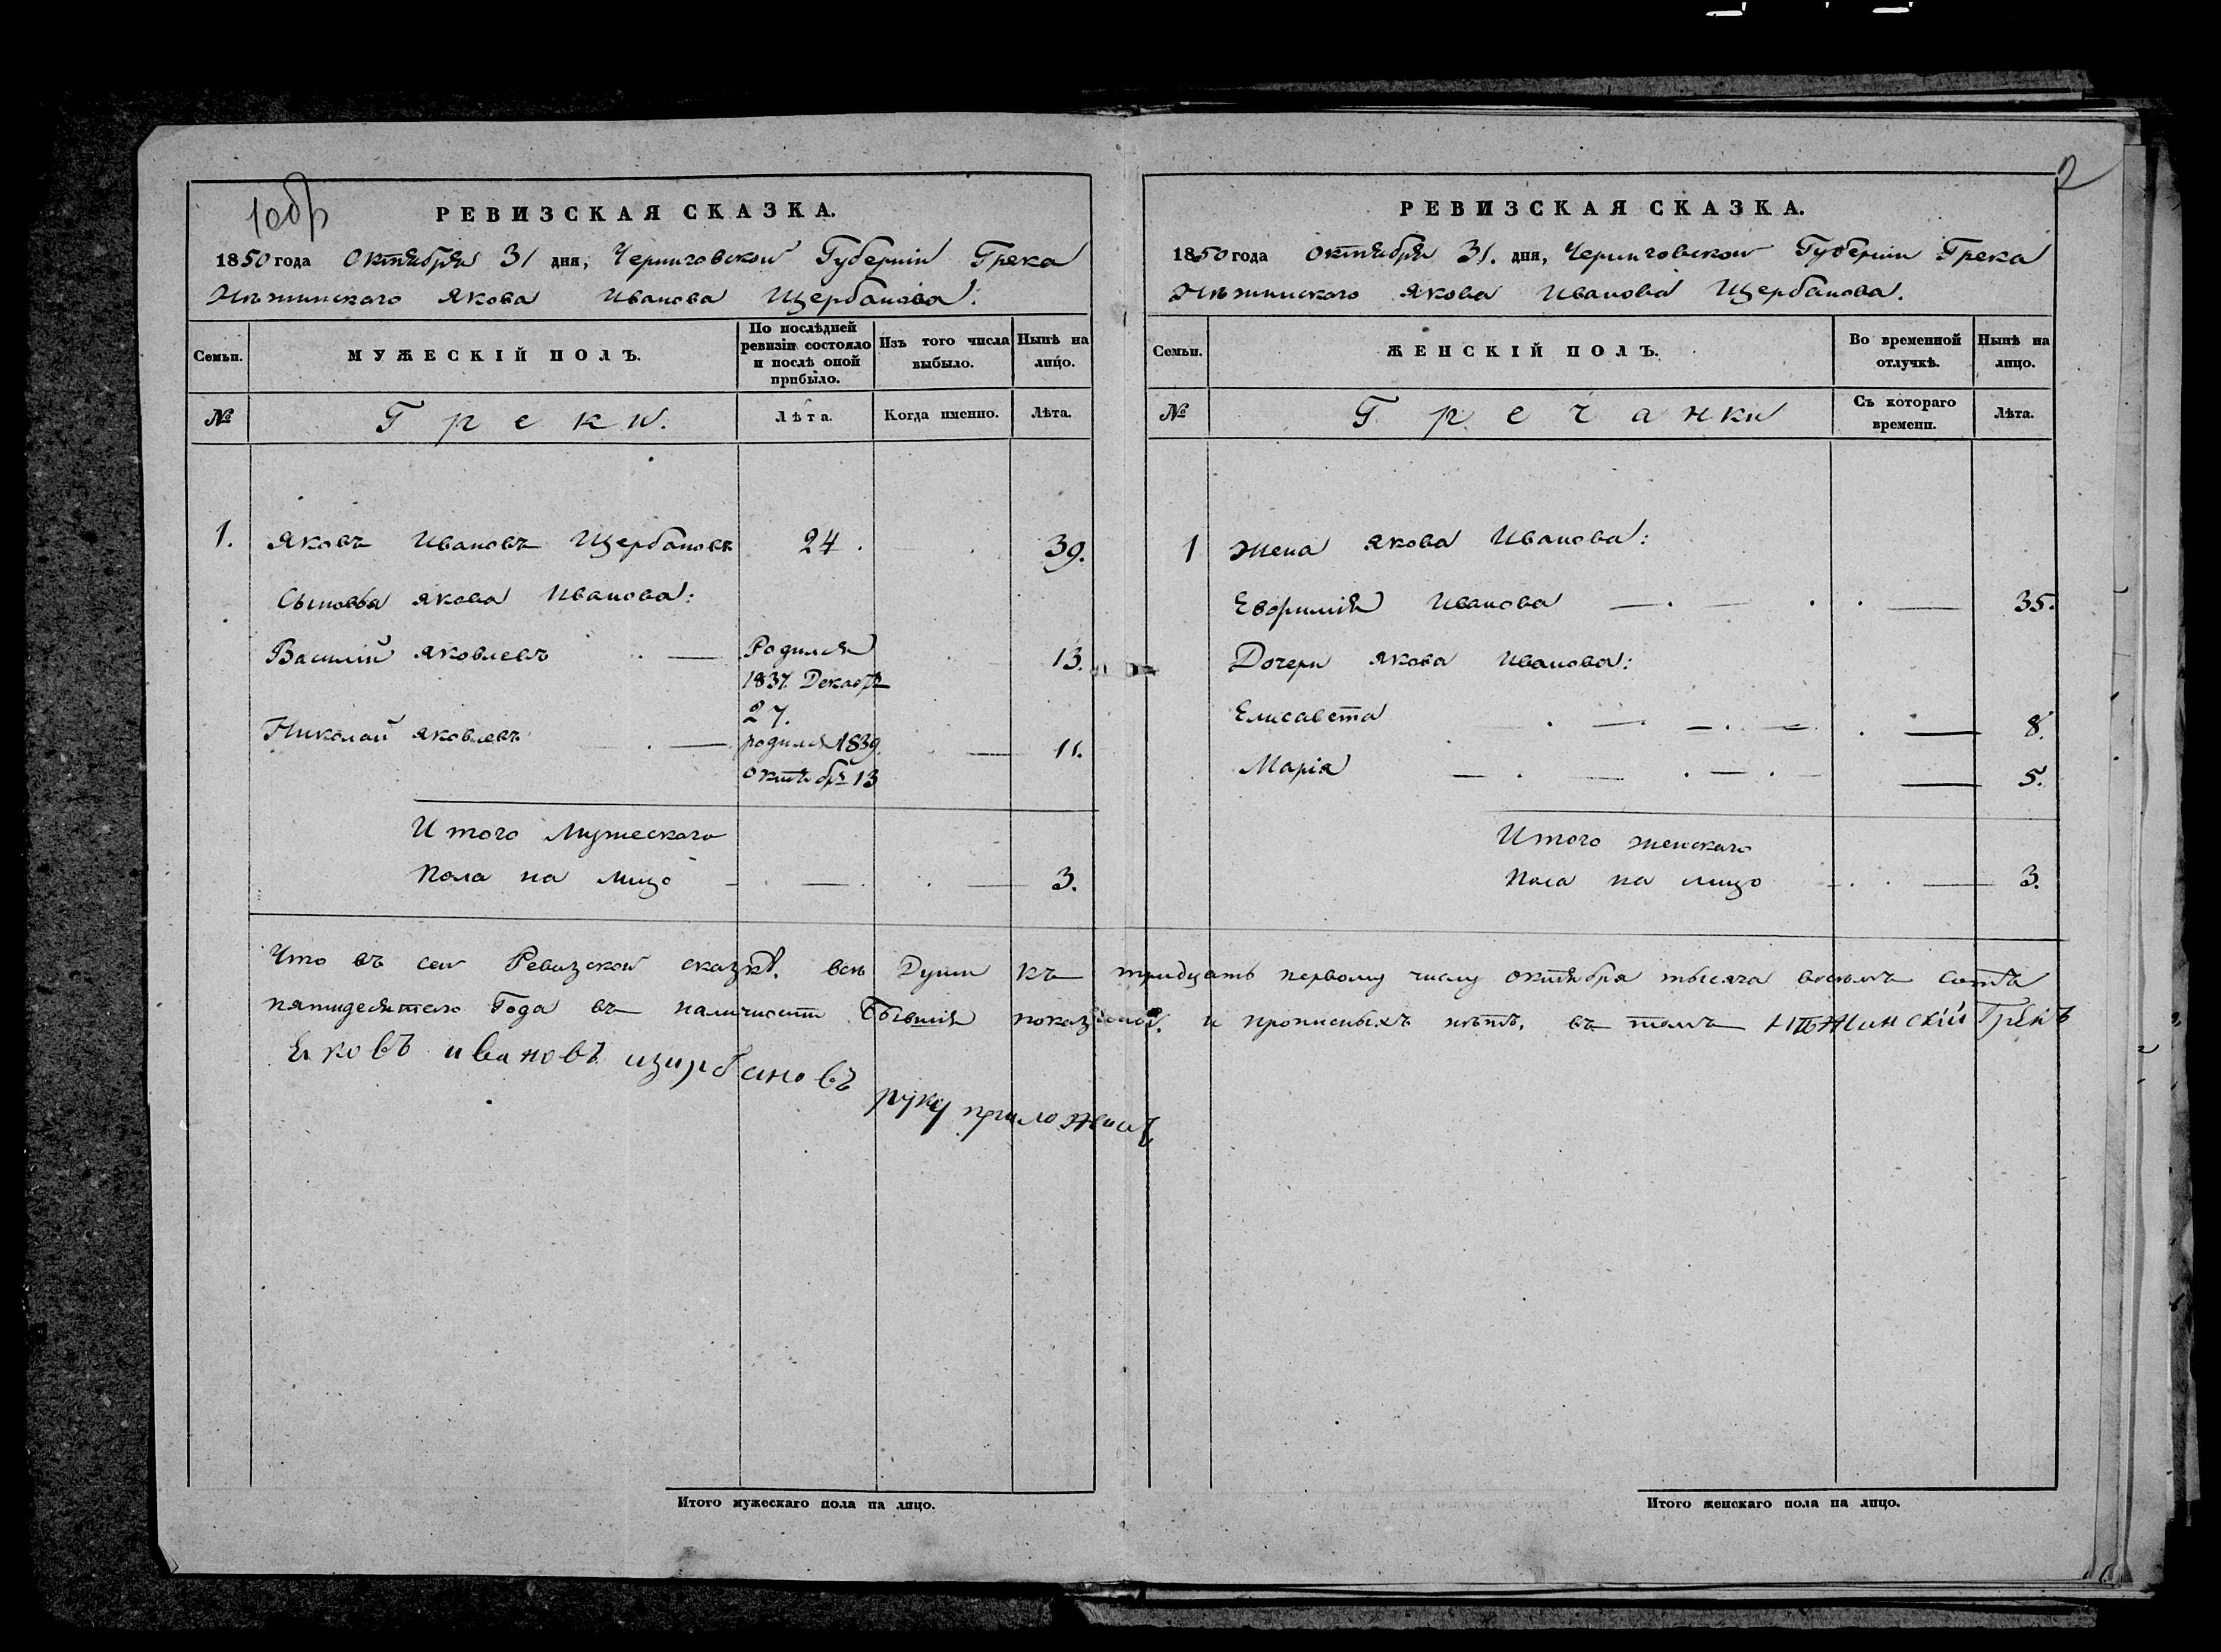 1 обр
РЕВИЗСКАЯ СКАЗКА.
1850 года Октября 31 дня, Черниговской Губерніи Грека
Нѣжинскаго Якова Иванова Щербанова.
Семьи.
МУЖЕСКІЙ ПОЛЪ.
По послѣдней ревизіи состояло и послѣ оной прибыло.
Изъ того числа выбыло.
Нынѣ на лицо.
№
Греки.
Лѣта.
Когда именно.
Лѣта.
1. Яковъ Ивановъ Щербановъ 24. 39.
Сыновья Якова Иванова:
Василій Яковлевъ — Родился 13.
1837. Декабр
27.
Николай Яковлевъ — родился 1839 — 11.
октябр 13
Итого Мужескаго
Пола на лицо — 3.
Итого мужескаго пола на лицо.
2
РЕВИЗСКАЯ СКАЗКА.
1850 года Октября 31. дня, Черниговской Губерніи Грека
Нѣжинского Якова Иванова Щербанова.
Семьи.
ЖЕНСКІЙ ПОЛЪ.
Во временной отлучкѣ.
Нынѣ на лицо.
№
Гречанки
Съ котораго времени.
Лѣта.
1 Жена Якова Иванова:
Евфимія Иванова — 35.
Дочери Якова Иванова:
Елисавета — 8.
Марія — 5.
Итого женскаго
Пола на лицо — 3.
Итого женскаго пола на лицо.
Что въ сей Ревизской сказкѣ. всѣ Души къ тридцать первому числу октября тысяча восемъ сотъ
пятидесятого Года въ наличности Бывшія и прописныхъ нѣтъ, въ томъ Нѣжинскій Грекъ
Яковъ ивановъ щирбановъ руку приложилъ